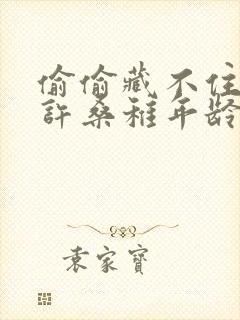 偷偷藏不住
許桑稚年龄
袁家寶